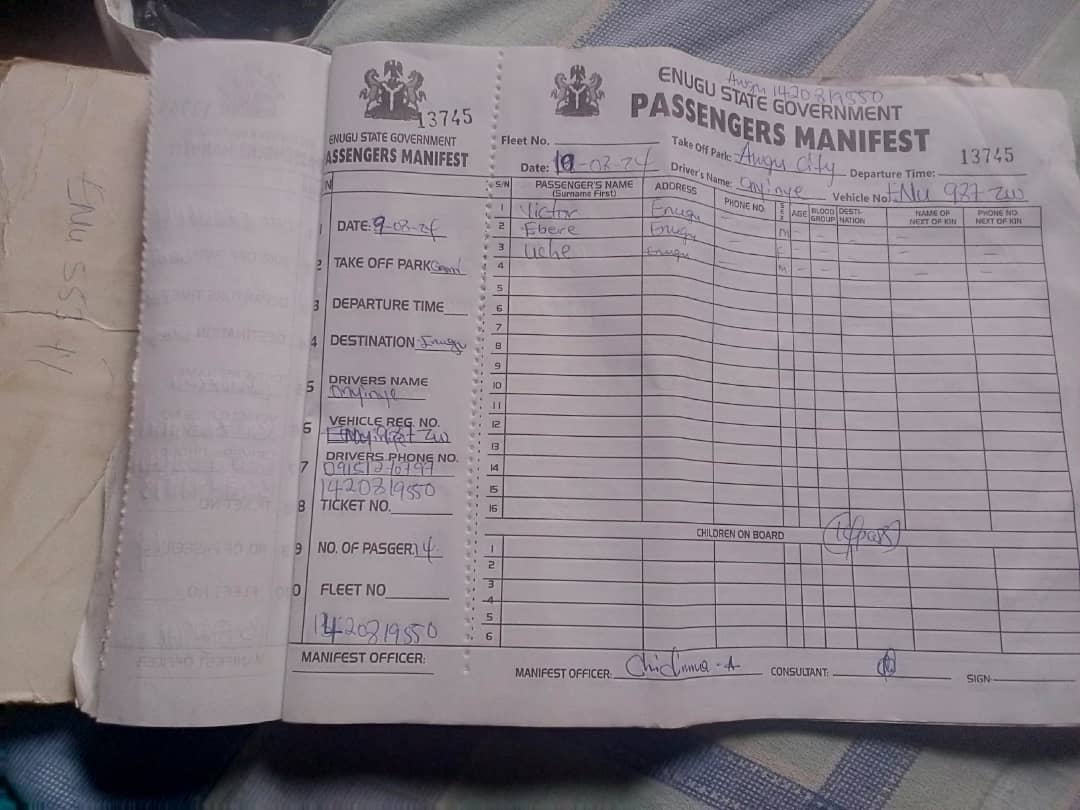 13745
ENUGU STATE GOVERNMENT
ASSENGERS MANIFEST
N
DATE: 9-08-24
2 TAKE OFF PARK
3 DEPARTURE TIME
4 DESTINATION Enugu
5 DRIVERS NAME
Onyinye
6 VEHICLE REG. NO.
7 DRIVERS PHONE NO.
1420819550
8 TICKET NO.
9 NO. OF PASGER. 14
0 FLEET NO
1420819550
MANIFEST OFFICER:
Awgu 1420819550
ENUGU STATE GOVERNMENT
PASSENGERS MANIFEST
13745
Fleet No.
Take Off Park: Awgu City
Departure Time:
Date: -08-24
Driver's Name: Onyinye
Vehicle No. ENU 987 ZW
S/N PASSENGER'S NAME (Surname First) ADDRESS PHONE NO. SEX AGE BLOOD GROUP DESTI-NATION NAME OF NEXT OF KIN PHONE NO. NEXT OF KIN
1 Victor Enugu - M - - - - -
2 Ebere Enugu - F - - - - -
3 Uche Enugu - M - - - - -
4
5
6
7
8
9
10
11
12
13
14
15
16
CHILDREN ON BOARD
1
2
3
4
5
6
MANIFEST OFFICER: Chidinma - A
CONSULTANT:
SIGN